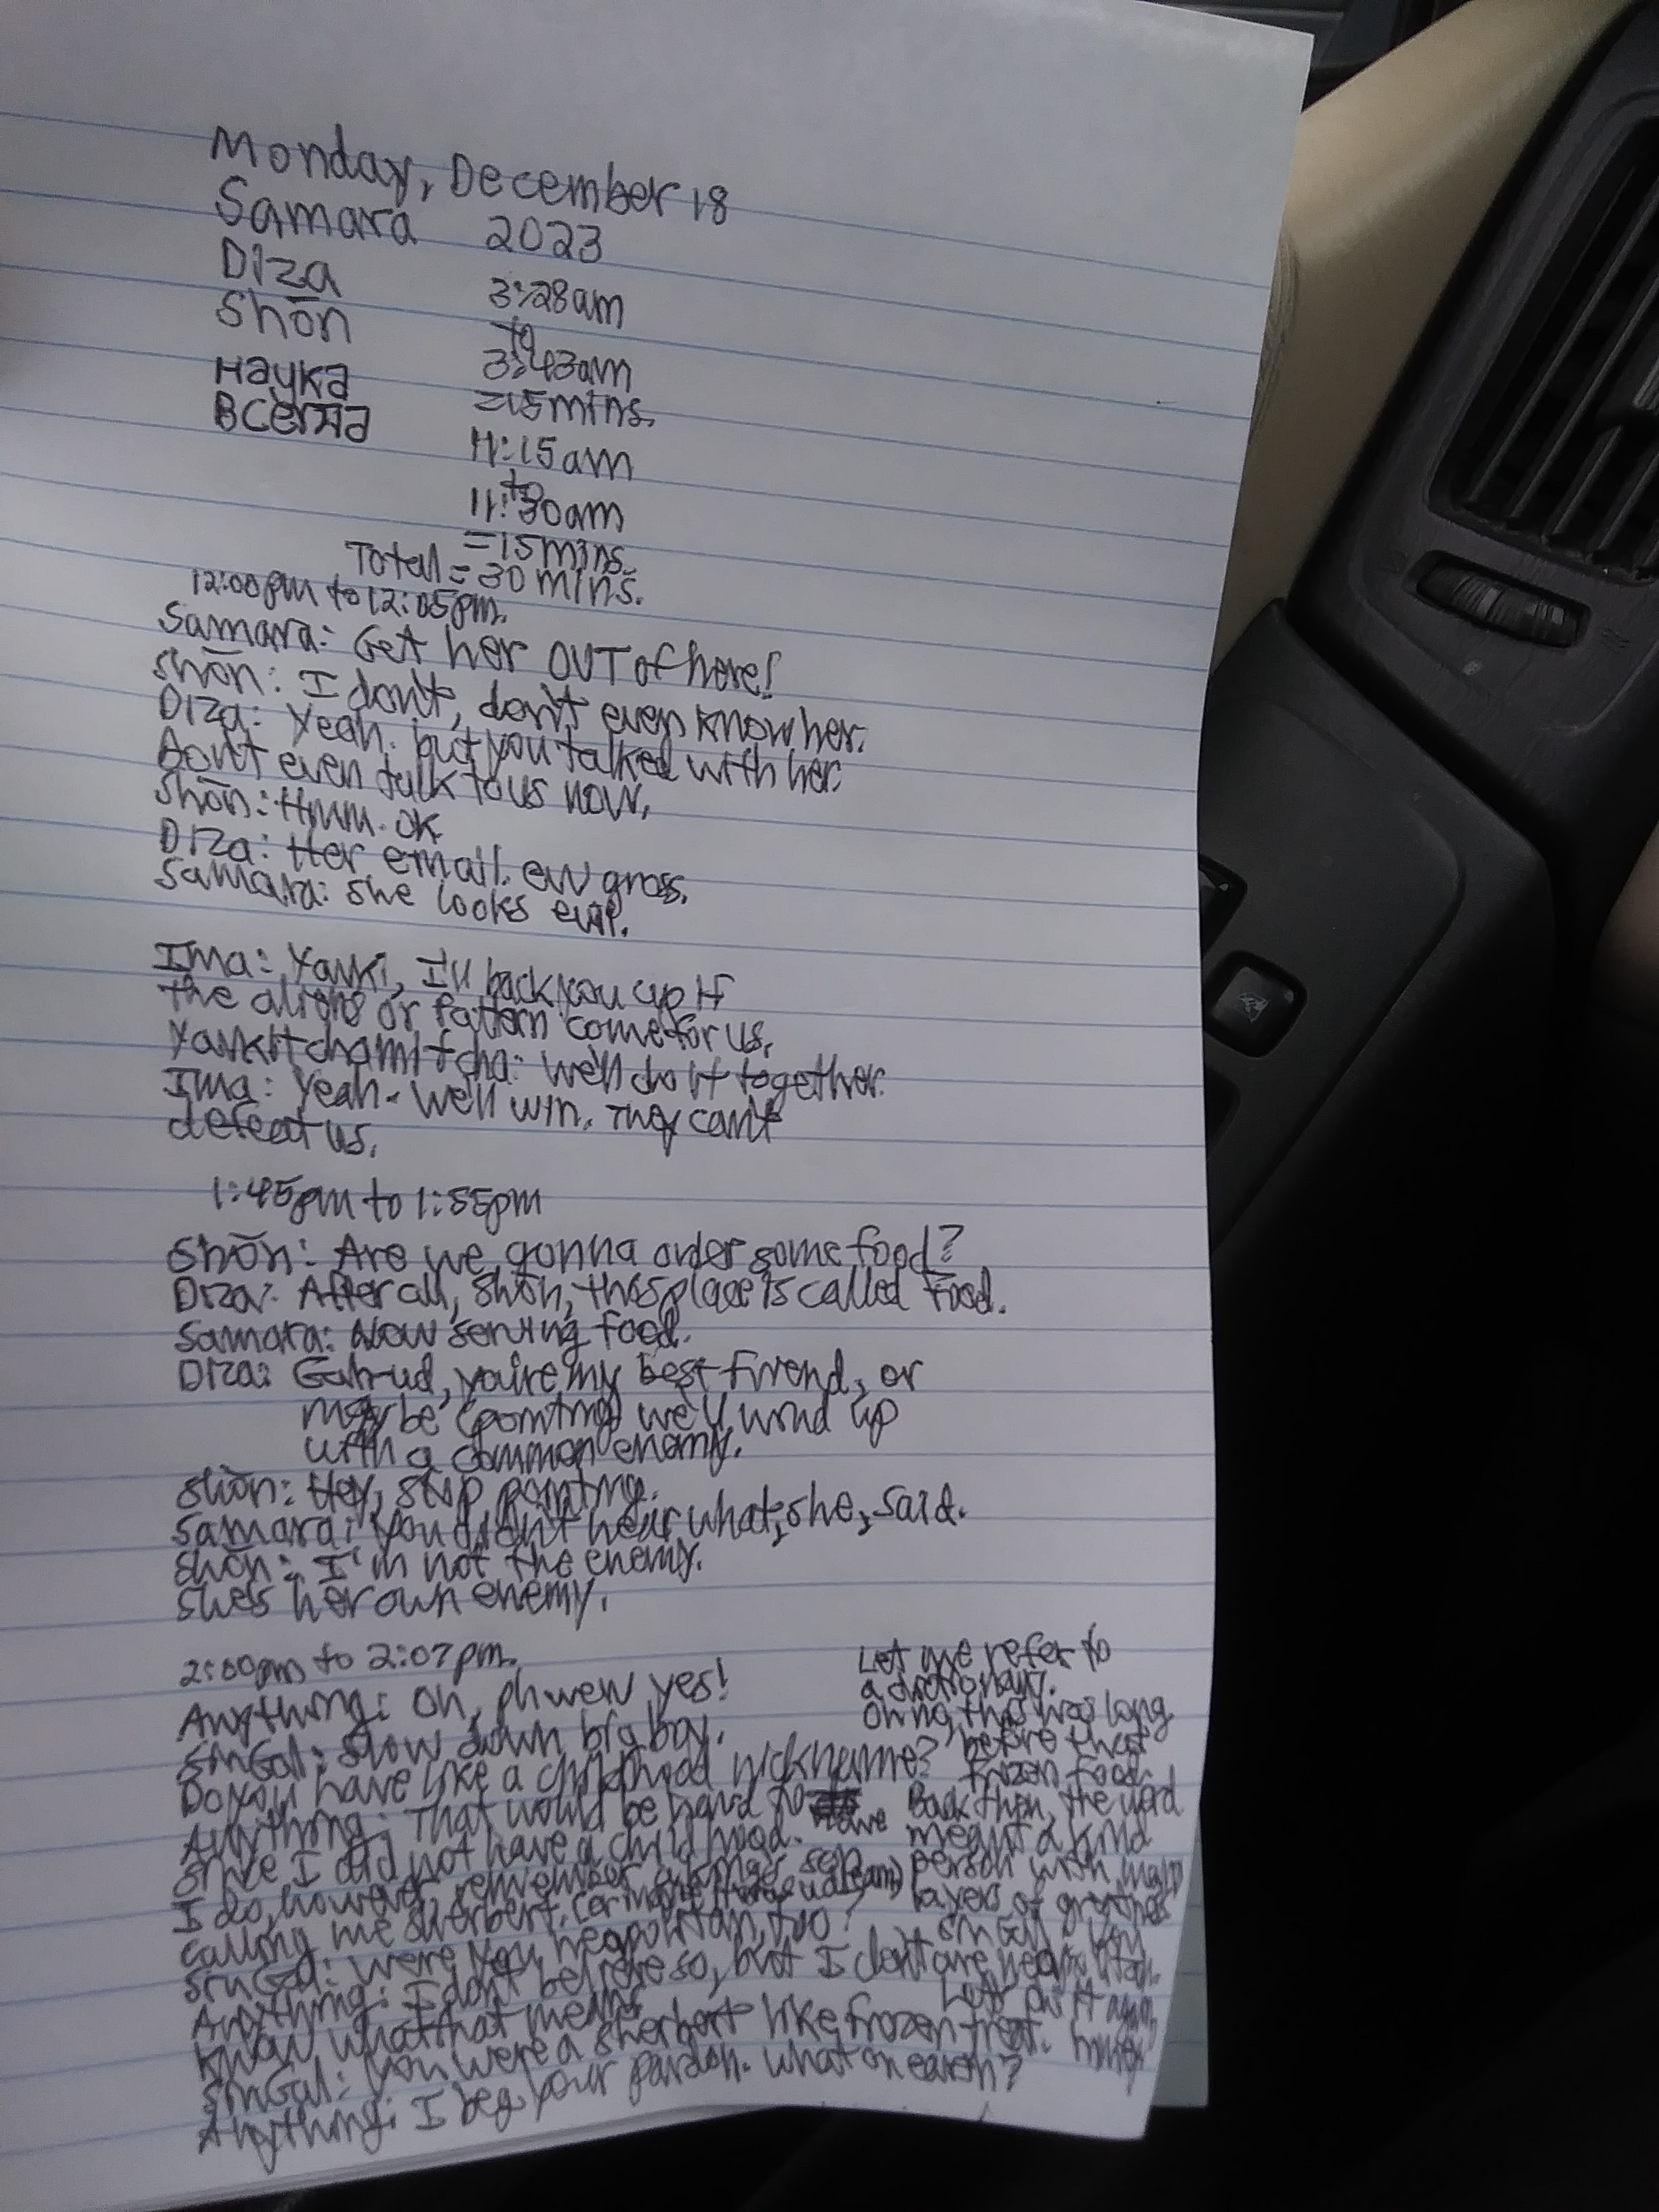 Monday, December 18
Samara 2023
Diza 3:28am
Shōn to
3:43am
Наука =15mins.
Всегда 11:15am
to
11:30am
=15mins.
Total = 30 mins.
12:00pm to 12:05pm.
Samara: Get her OUT of here!
Shōn: I don't, don't even know her.
Diza: Yeah. but you talked with her.
Don't even talk to us now.
Shōn: Hmm. OK
Diza: Her email. ew gross.
Samara: She looks evil.
Ima: Yauki, I'll back you up if
the aliens or Pattern come for us.
Yaukitchamitcha: We'll do it together.
Ima: Yeah. We'll win. They can't
defeat us.
1:45pm to 1:55pm
Shōn: Are we gonna order some food?
Diza: After all, Shōn, this place is called Food.
Samara: Now serving food.
Diza: Gah-ud, you're my best firend, or
maybe (pointing) we'll wind up
with a common enemy.
Shōn: Hey, stop pointing.
Samara: You didn't hear what, she, said.
Shōn: I'm not the enemy.
She's her own enemy.
2:00pm to 2:07pm.
Anything: Oh, phwew yes!
SmGal: Slow down big boy.
Do you have like a childhood nickname?
Anything: That would be hard to have
since I did not have a childhood.
I do, however, remember a
calling me sherbert. (or maybe it was a dream)
SmGal: Were you neapolitan, too?
Anything: I don't believe so, but I don't
know what that means
SmGal: You were a sherbert like frozen treat.
Anything: I beg your pardon. What on earth?
Let me refer to
a dictionary.
Oh no, this was long
before that
frozen food.
Back then, the word
meant a kind
person with many
layers of greatness
SmGal: You
are neapolitan.